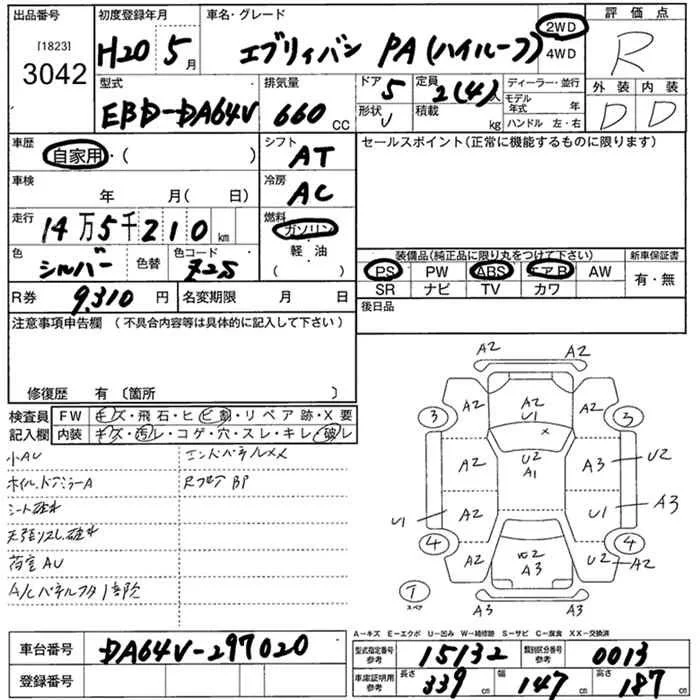 出品番号 初度登録年月 車名・グレード 評価点
[1823]
3042
H20 5月 エブリィバン PA (ハイルーフ) 2WD 4WD R
型式 排気量 ドア 定員 ディーラー・並行 外装 内装
EBD-DA64V 660 CC 5 2(4)人 モデル年式 年 D D
形状 V 積載 kg ハンドル 左・右
車歴 自家用・( ) シフト AT セールスポイント(正常に機能するものに限ります)
車検 年 月( 日) 冷房 AC
走行 14万5千210km 燃料 ガソリン
色 シルバー 色替 色コード Z2S 軽・油 ( )
装備品(純正品に限り丸をつけて下さい) 新車保証書
PS PW ABS エアB AW 有・無
SR ナビ TV カワ
R券 9,310円 名変期限 月 日 後日品
注意事項申告欄 (不具合内容等は具体的に記入して下さい)
修復歴 有 〔箇所 〕
検査員 記入欄
FW キズ・飛石・ヒビ割・リペア跡・X要
内装 キズ・汚レ・コゲ・穴・スレ・キレ・破レ
小AU エンドパネルXX
ホイル、ドアミラーA
シート破れ
天張り
荷室AU
A/Cパネルフタ1部
A2 A2
3 A2 A2 U1 A2 3
X
A2 U2 A1 A3 U2
U1 A2 U1 A3
4 A2 A3 U2 A2 4
1 スペア A3 A3
A−キズ E−エクボ U−凹み W−補修跡 S−サビ C−腐食 XX−交換済
車台番号 DA64V-297020
型式指定番号 参考 15132 類別区分番号 参考 0013
登録番号
車庫証明用 参考 長さ 339cm 幅 147cm 高さ 187cm